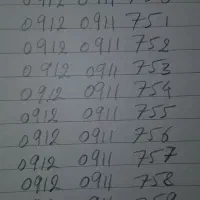 0912 0911 751
0912 0911 752
0912 0911 753
0912 0911 754
0912 0911 755
0912 0911 756
0912 0911 757
0912 0911 758